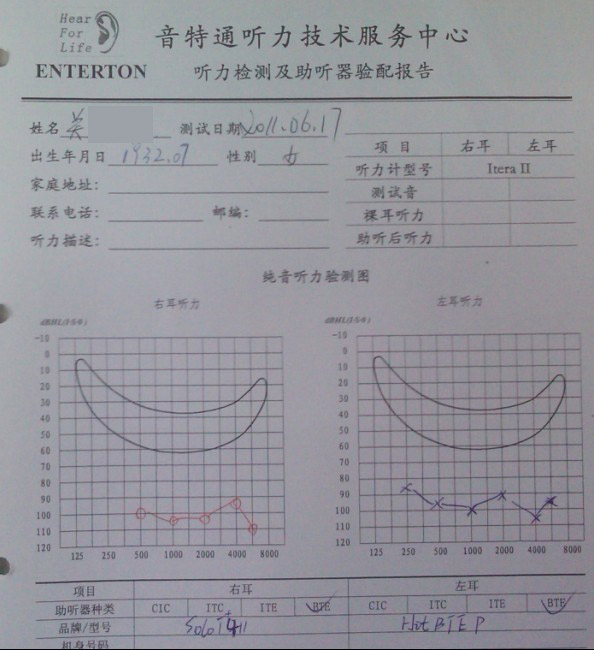 Hear
For
Life
ENTERTON
音特通听力技术服务中心
听力检测及助听器验配报告
姓名 吴 测试日期 2011.06.17
出生年月日 1932.07 性别 女
家庭地址:
联系电话: 邮编:
听力描述:
项目 右耳 左耳
听力计型号 Itera II
测试音
裸耳听力
助听后听力
纯音听力验测图
右耳听力
左耳听力
-10
0
10
20
30
40
50
60
70
80
90
100
110
120
125 250 500 1000 2000 4000 8000
-10
0
10
20
30
40
50
60
70
80
90
100
110
120
125 250 500 1000 2000 4000 8000
项目 右耳 左耳
助听器种类 CIC ITC ITE BTE CIC ITC ITE BTE
品牌/型号 Solo BTE P
机身号码